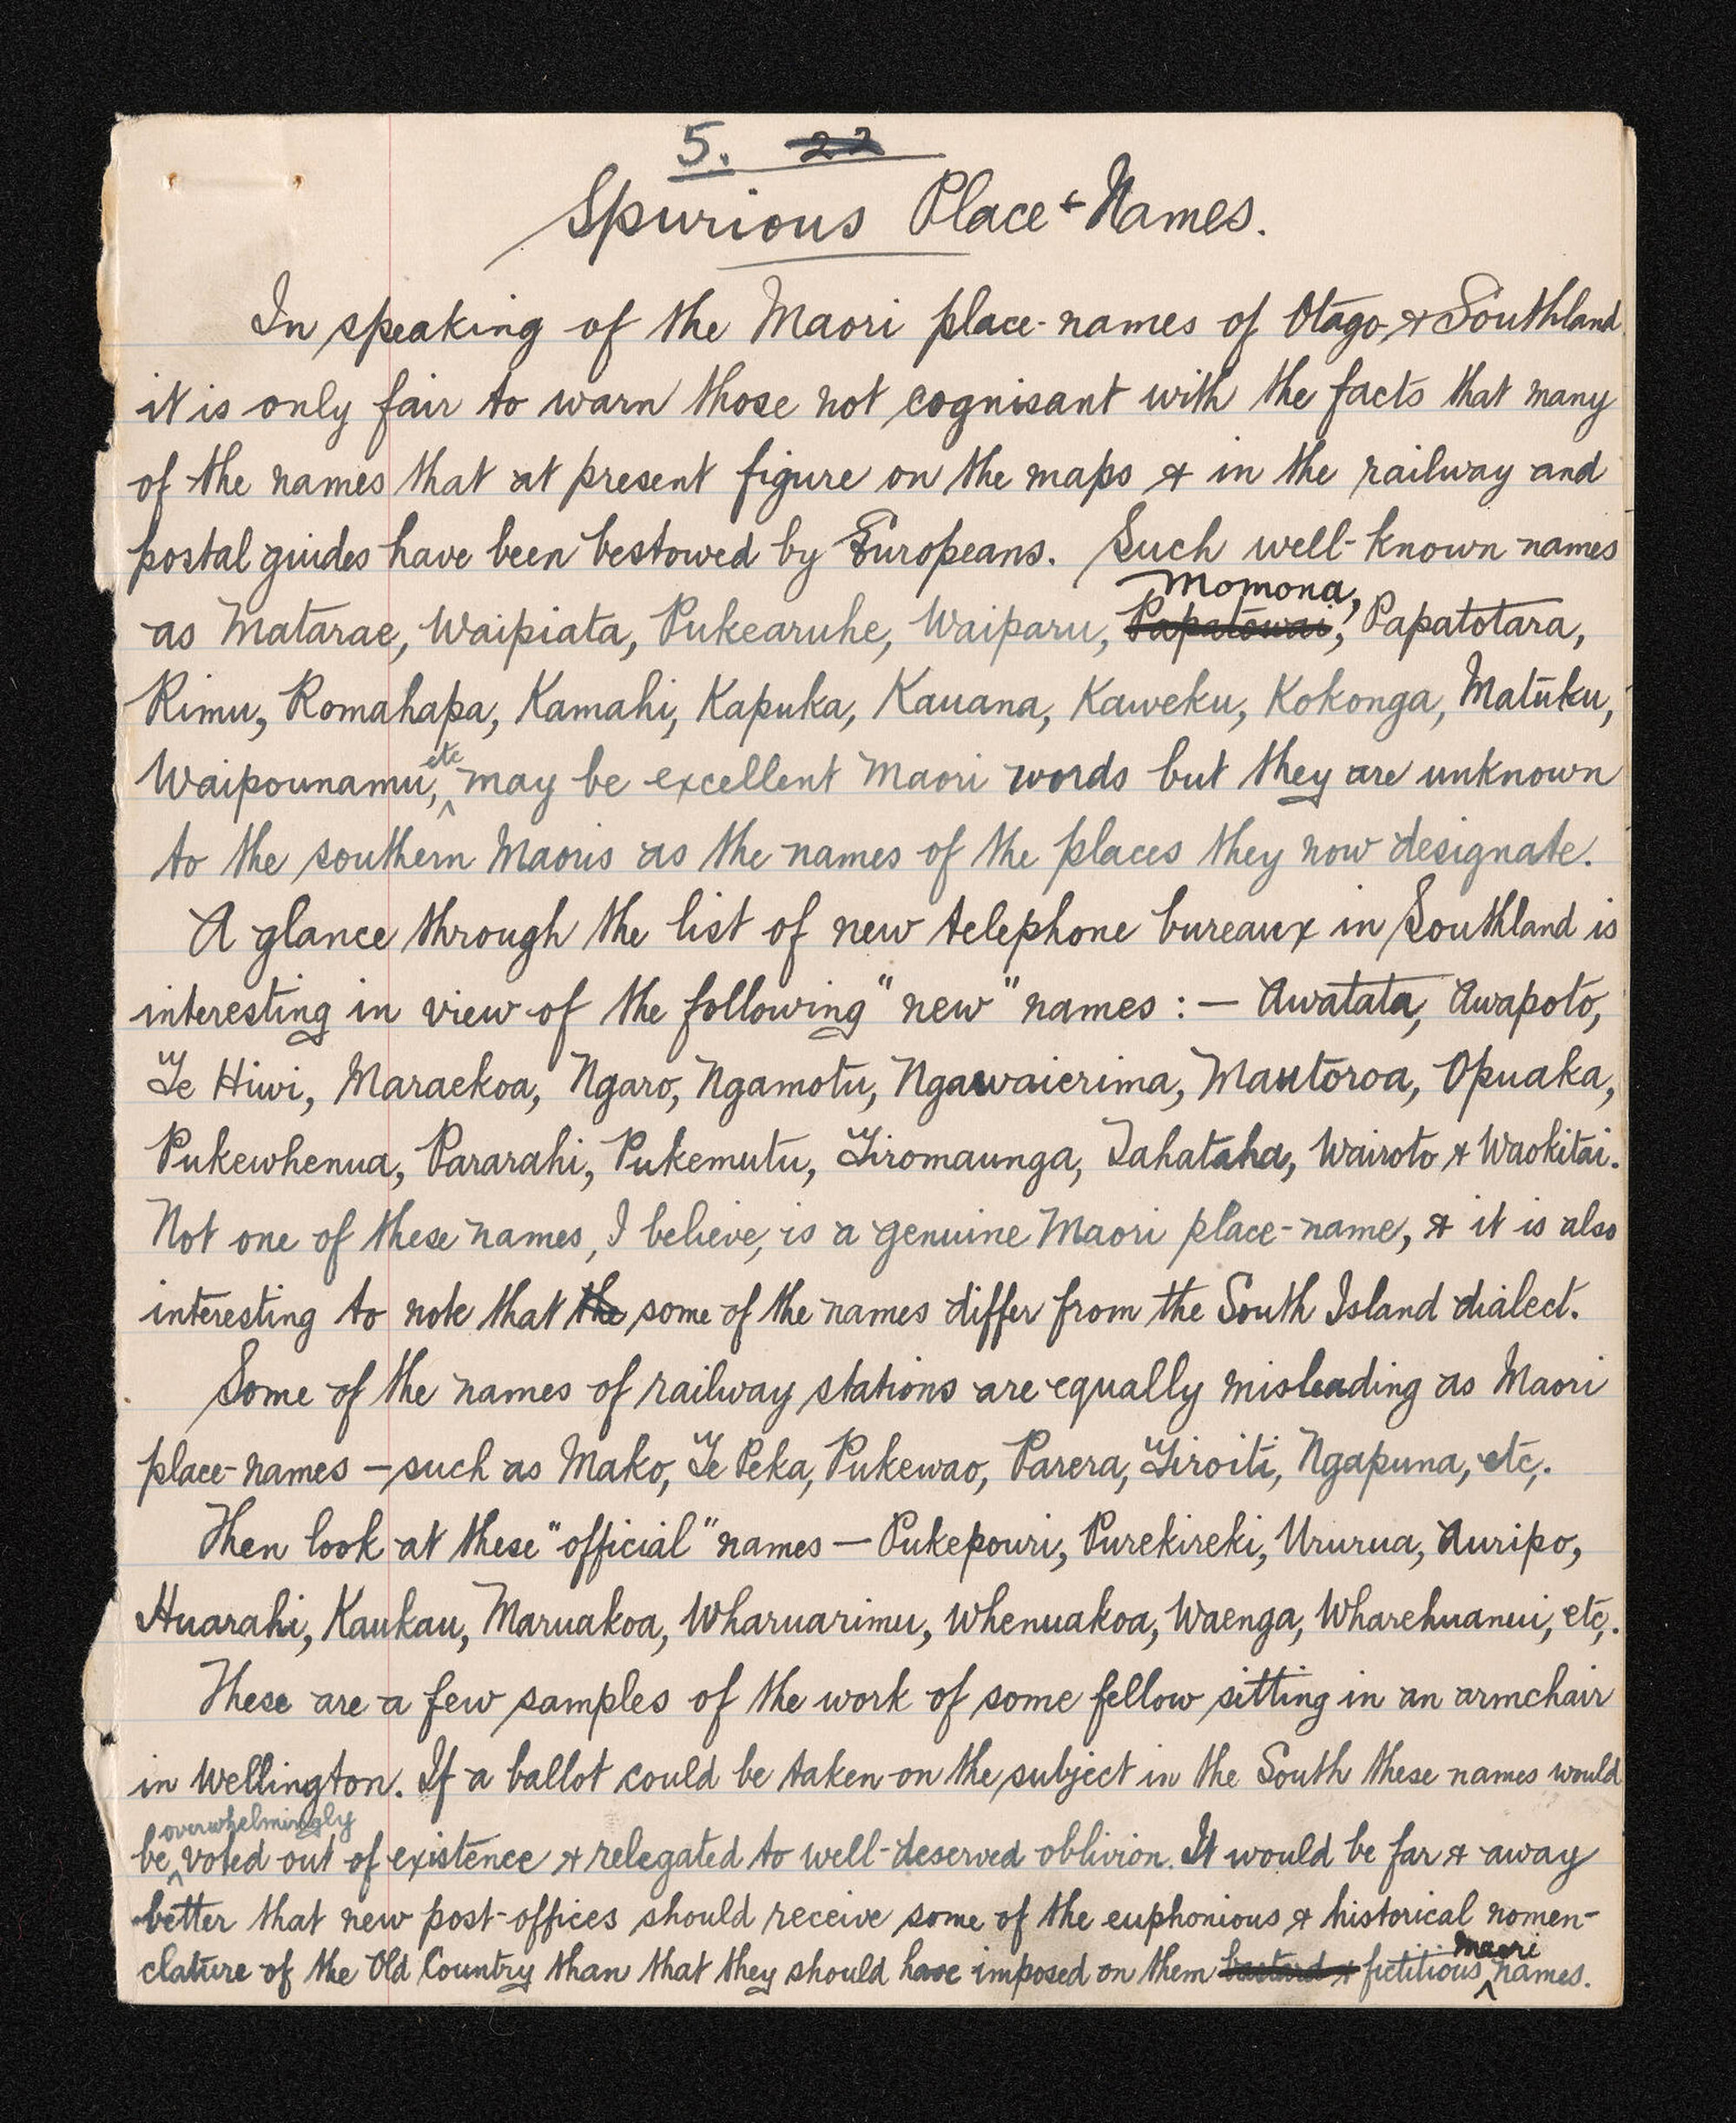 5. 22
Spurious Place-Names.
In speaking of the Maori place-names of Otago & Southland
it is only fair to warn those not cognisant with the facts that many
of the names that at present figure on the maps & in the railway and
postal guides have been bestowed by Europeans. Such well-known names
Momona,
as Matarae, Waipiata, Pukearuhe, Waiparu, Papatowai, Papatotara,
Rimu, Romahapa, Kamahi, Kapuka, Kauana, Kaweku, Kokonga, Matuku,
etc
Waipounamu, may be excellent Maori words but they are unknown
to the southern Maoris as the names of the places they now designate.
A glance through the list of new telephone bureaux in Southland is
interesting in view of the following "new" names : — Awatata, Awapoto,
Te Hiwi, Maraekoa, Ngaro, Ngamotu, Ngawaierima, Mautoroa, Opuaka,
Pukewhenua, Pararahi, Pukemutu, Tiromaunga, Tahataha, Wairoto & Waokitai.
Not one of these names, I believe, is a genuine Maori place-name, & it is also
interesting to note that the some of the names differ from the South Island dialect.
Some of the names of railway stations are equally misleading as Maori
place-names — such as Mako, Te Peka, Pukewao, Parera, Tiroiti, Ngapuna, etc,.
Then look at these "official" names — Pukepouri, Purekireki, Ururua, Auripo,
Huarahi, Kaukau, Maruakoa, Wharuarimu, Whenuakoa, Waenga, Wharehuanui, etc,.
These are a few samples of the work of some fellow sitting in an armchair
in Wellington. If a ballot could be taken on the subject in the South these names would
overwhelmingly
be voted out of existence & relegated to well-deserved oblivion. It would be far & away
better that new post-offices should receive some of the euphonious & historical nomen-
clature of the Old Country than that they should have imposed on them bastard & fictitious names.
Maori